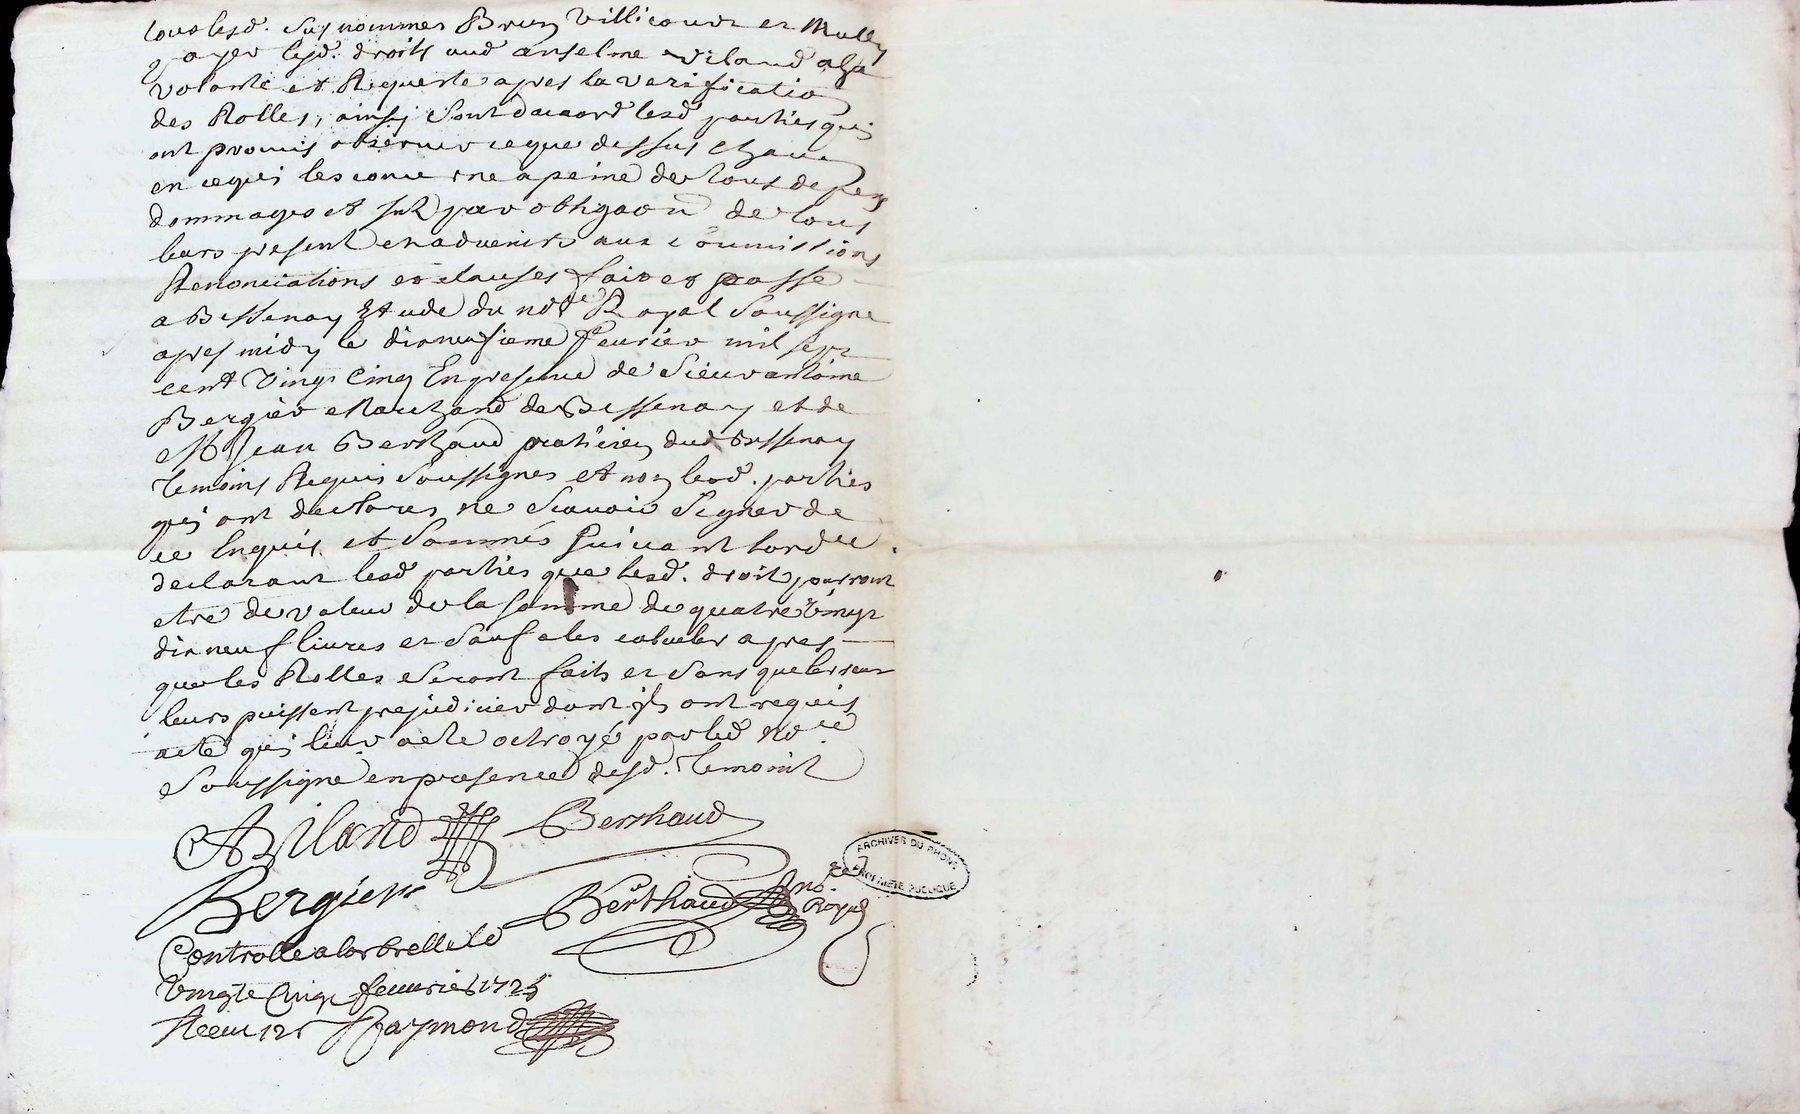 tous lesd. susnommes Brun Villicourt et Mully
payer lesd. droits aud anselme vilaud a sa
volonté et Requeste apres la verification
des Rolles, ainsy sont daccord lesd parties qui
ont promis observer ce que dessus chacun
en ce qui les concerne a peine de tous depens
dommages et par obligaon de tous
leurs present et advenirs aux soumissions
Renonciations et clauses fait et passé
a Bessenay Etude du not.re Royal soussigne
apres midy le dixneufieme feurier mil sept
cent vingt cinq En presence de sieur antoine
Bergier Marchand de Bessenay et de
M Jean Berthaud praticien dud bessenay
temoins Requis soussignes et non lesd. parties
qui ont declares ne scauoir signer de
ce Enquis et sommés suiuant lord.ce
declarant lesd parties que lesd. droits pourront
etre de valeur de la somme de quatre vingt
dix neuf liures et sauf a les calculer apres
que les Rolles seront faits et sans que les
leurs puissent prejudicier dont ils ont requis
acte qui leur a ete octroyé par led no.re
soussigne en presence desd. temoins
AVilaud Berthaud
Bergier Berthaud no.re Royal
ARCHIVES DU RHONE
PROPRIÉTÉ PUBLIQUE
Controlle a larbrelle le
vingte cinq feuurier 1725
Receu 12 s Raymond